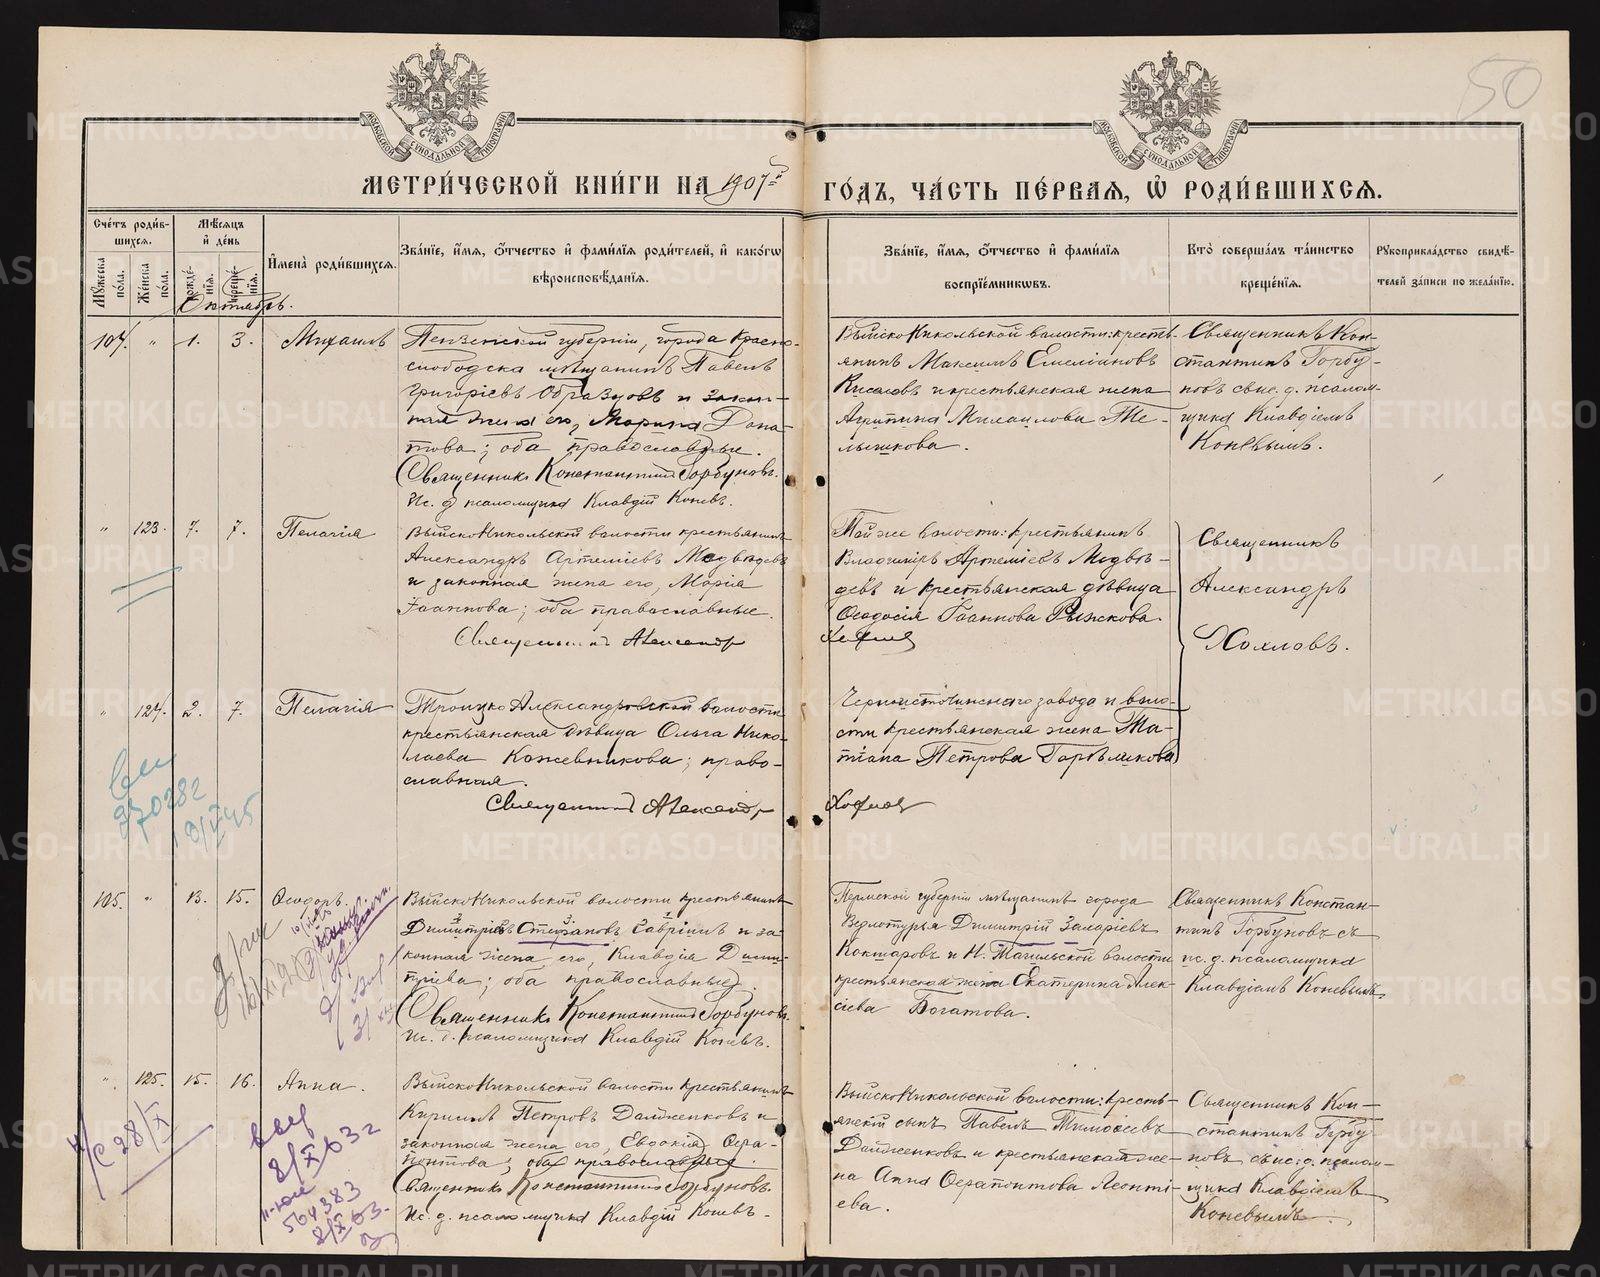 50
МОСКОВСКОЙ СѴНОДАЛЬНОЙ ТИПОГРАФІИ
МОСКОВСКОЙ СѴНОДАЛЬНОЙ ТИПОГРАФІИ
МЕТРИ́ЧЕСКОЙ КНИ́ГИ НА 1907й ГО́ДЪ, ЧА́СТЬ ПЕ́РВАЯ, Ѿ РОДИ́ВШИХСЯ.
Сче́тъ роди́в-
шихся.
Му́жеска по́ла.
Же́нска по́ла.
Мѣ́сяцъ
и҆ де́нь
рожде́-
нія.
креще́-
нія.
И҆мена̀ роди́вшихся.
Зва́ніе, и҆́мя, ѻ҆́тчество и҆ фами́лія роди́телей, и҆ како́гѡ
вѣроисповѣ́данія.
Зва́ніе, и҆́мя, ѻ҆́тчество и҆ фами́лія
воспріе́мникѡвъ.
Кто̀ соверша́лъ та́инство
креще́нія.
Рꙋкоприкла́дство свидѣ́-
телей за́писи по жела́нію.
Октябрь.
104. " 1. 3. Михаилъ
Пензенской губерніи, города Красно-
слободска мѣщанинъ Павелъ
Григоріевъ Образцовъ и закон-
ная жена его, Марина Дона-
това; оба православные.
Священникъ Константинъ Горбуновъ.
Ис. д. псаломщика Клавдій Коневъ.
Выйско Никольской волости: кресть-
янинъ Максимъ Емеліановъ
и крестьянская жена
Михаилова
Священникъ Кон-
стантинъ Горбу-
новъ съ ис. д. псалом-
щика Клавдіемъ
Коневымъ.
" 123. 7. 7. Пелагія
Выйско Никольской волости крестьянинъ
Александръ Артеміевъ Медвѣдевъ
и законная жена его, Марія
Іоаннова; оба православные.
Священникъ Александръ Хохловъ
Той же волости: крестьянинъ
Владиміръ Артеміевъ Медвѣ-
девъ и крестьянская дѣвица
Ѳеодосія Іоаннова Рыжкова.
Священникъ
Александръ
Хохловъ.
" 124. 2. 7. Пелагія
Троицко Александровской волости
крестьянская дѣвица Ольга Нико-
лаева Кожевникова; право-
славная.
Священникъ Александръ Хохловъ
Черноисточинскаго завода и воло-
сти крестьянская жена Та-
тіана Петрова
970282
105. " 13. 15. Ѳеодоръ.
Выйско Никольской волости крестьянинъ
Димитрій Стефановъ Гаврилинъ и за-
конная жена его, Клавдія Дими-
тріева; оба православные.
Священникъ Константинъ Горбуновъ.
Ис. д. псаломщика Клавдій Коневъ.
Пермской губерніи мѣщанинъ города
Верхотурья Димитрій Захаріевъ
Кокшаровъ и Н. Тагильской волости
крестьянская жена Екатерина Алек-
сіева Богатова.
Священникъ Констан-
тинъ Горбуновъ съ
ис. д. псаломщика
Клавдіемъ Коневымъ
" 125. 15. 16. Анна.
Выйско Никольской волости крестьянинъ
Кириллъ Петровъ Долженковъ и
законная жена его, Евдокія Ѳера-
понтова; оба православные.
Священникъ Константинъ Горбуновъ.
Ис. д. псаломщика Клавдій Коневъ.
Выйско Никольской волости: кресть-
янскій сынъ Павелъ Тимоѳеевъ
Долженковъ и крестьянская же-
на Анна Ѳерапонтова Леонті-
ева.
Священникъ Кон-
стантинъ Горбу-
новъ съ ис. д. псалом-
щика Клавдіемъ
Коневымъ.
28/X
8/X 63 г
564383
8/X 63.
METRIKI.GASO-URAL.RU